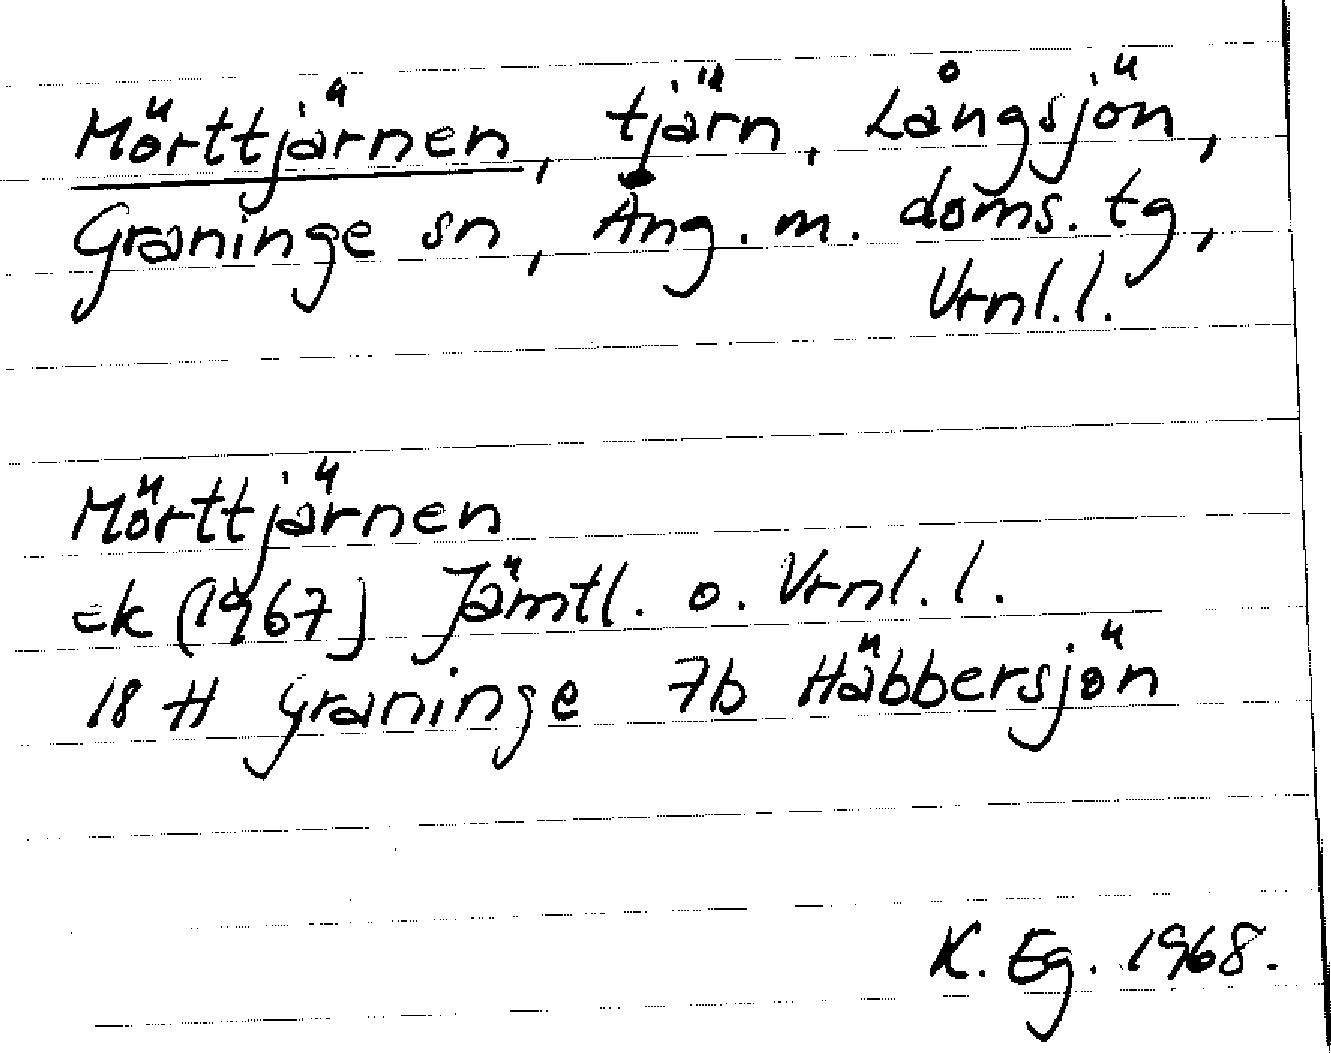 Mörttjärnen, tjärn, Långsjön,
Graninge sn, Ång. m. doms. tg,
Vrnl.l.
Mörttjärnen
ek (1967) Jämtl. o. Vrnl. l.
18 H Graninge 7b Häbbersjön
K. Eg. 1968.